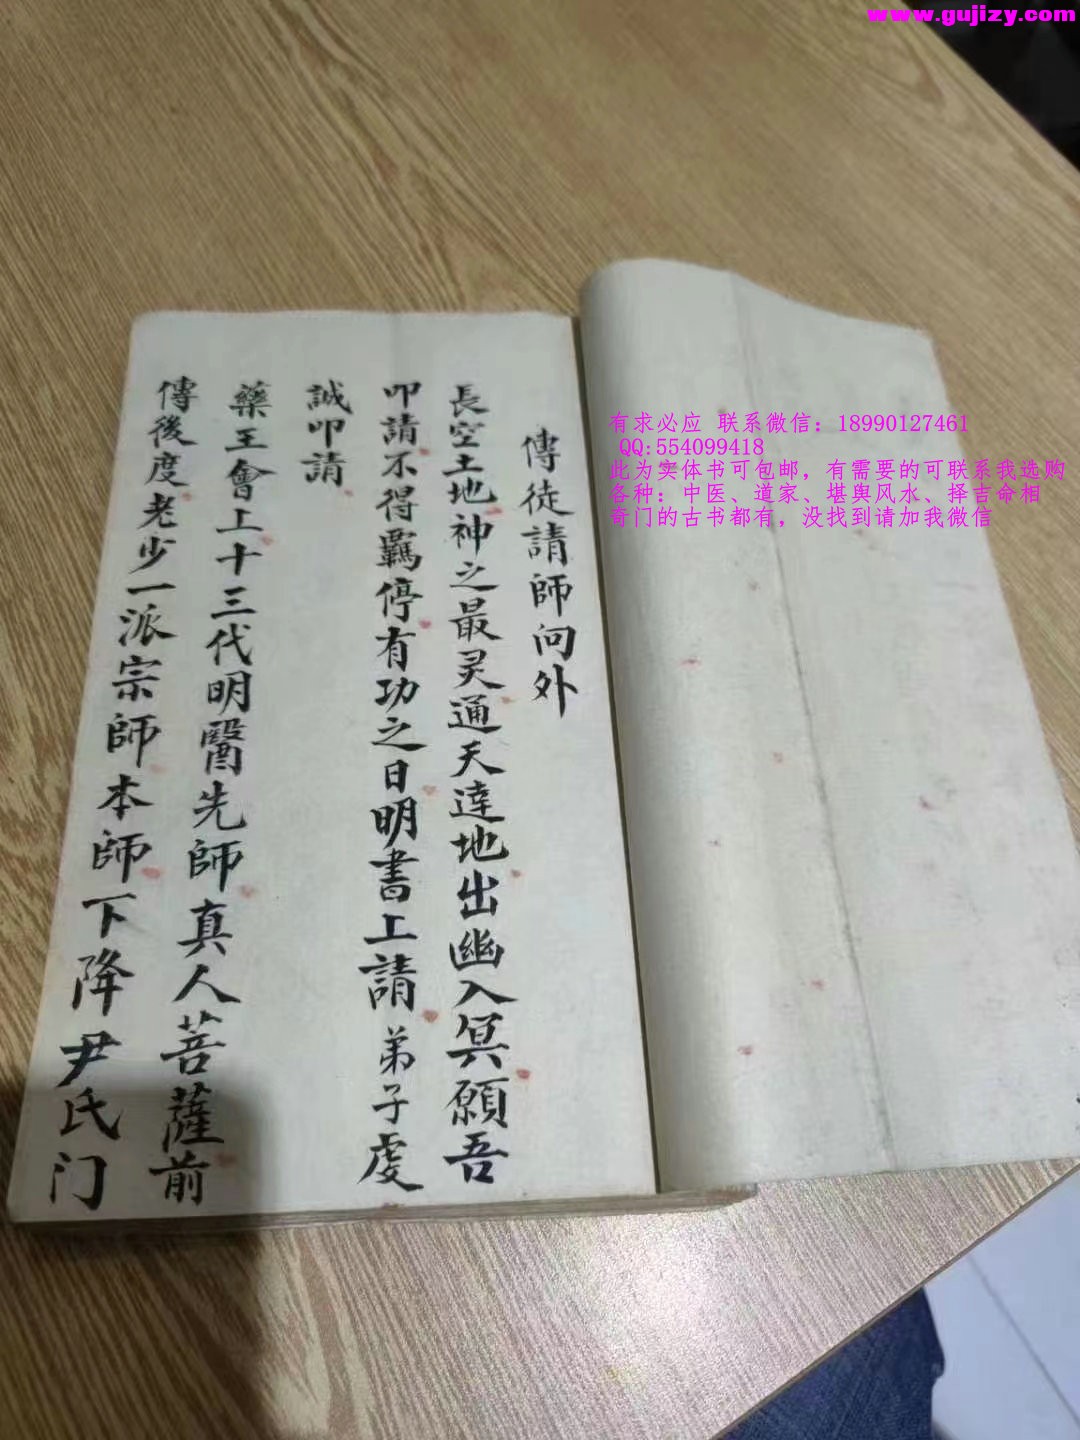 www.gujizy.com
有求必应 联系微信：18990127461
QQ:554099418
此为实体书可包邮，有需要的可联系我选购
各种：中医、道家、堪舆风水、择吉命相
奇门的古书都有，没找到请加我微信
傳徒請師向外
長空土地神之最灵通天達地出幽入冥願吾
叩請不得羈停有功之日明書上請弟子虔
誠叩請
藥王會上十三代明醫先師真人菩薩前
傳後度老少一派宗師本師下降尹氏门